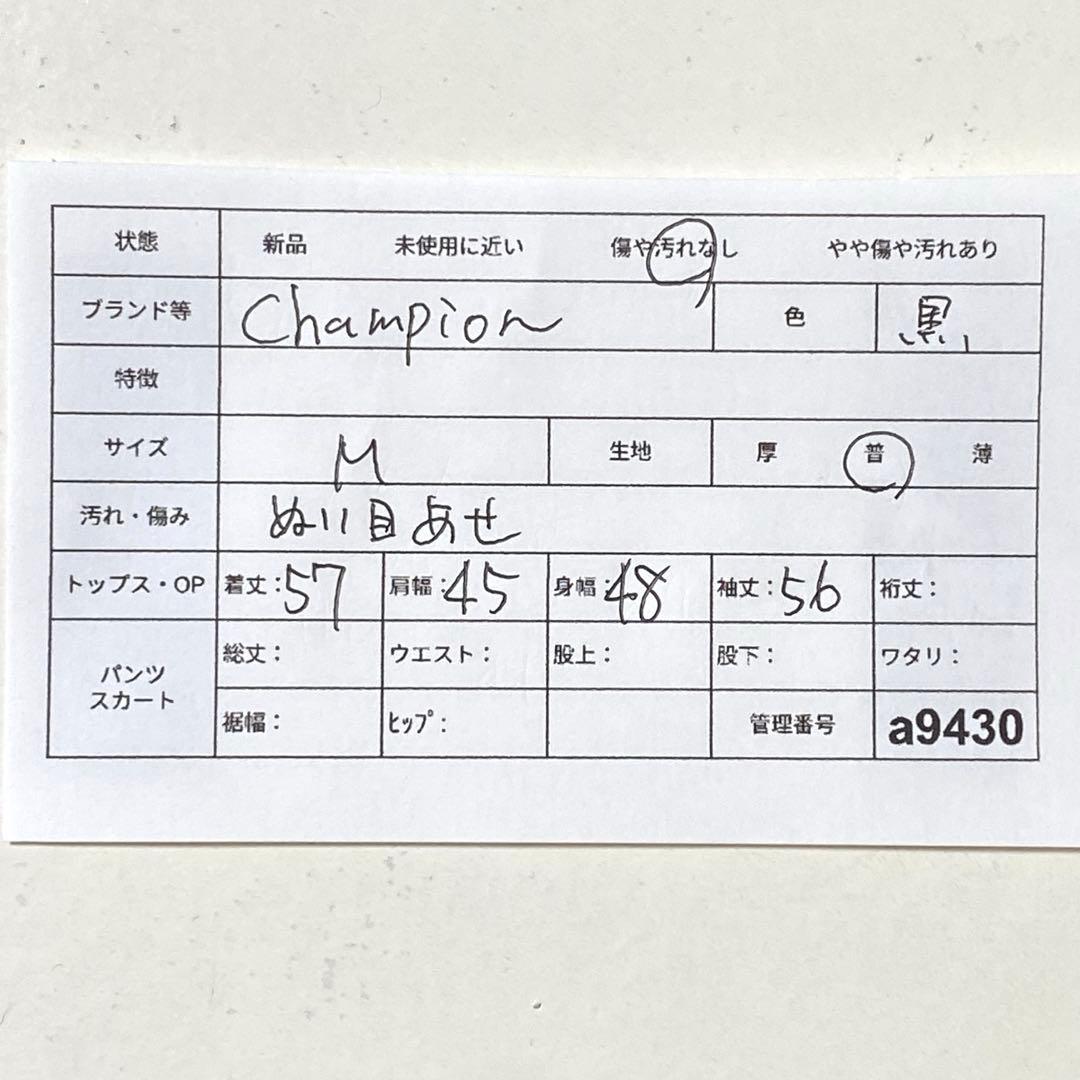 状態 新品 未使用に近い 傷や汚れなし やや傷や汚れあり
ブランド等 Champion 色 黒
特徴
サイズ M 生地 厚 普 薄
汚れ・傷み ぬい目あせ
トップス・OP 着丈:57 肩幅:45 身幅:48 袖丈:56 裄丈:
パンツ スカート 総丈: ウエスト: 股上: 股下: ワタリ:
裾幅: ﾋｯﾌﾟ: 管理番号 a9430